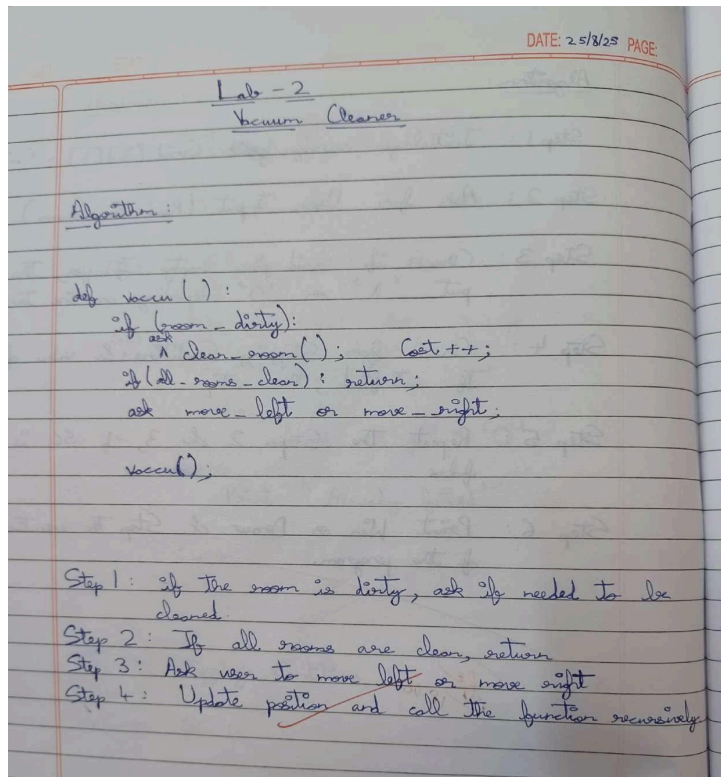 DATE: 25/8/25 PAGE:
Lab - 2
Vacuum Cleaner
Algorithm:
def vaccu():
if (room_dirty):
ask
^ clean_room(); Cost++;
if (all-rooms-clean): return;
ask move_left or move_right;
vaccu();
Step 1: if the room is dirty, ask if needed to be
cleaned.
Step 2: If all rooms are clean, return
Step 3: Ask user to move left or move right
Step 4: Update position and call the function recursively